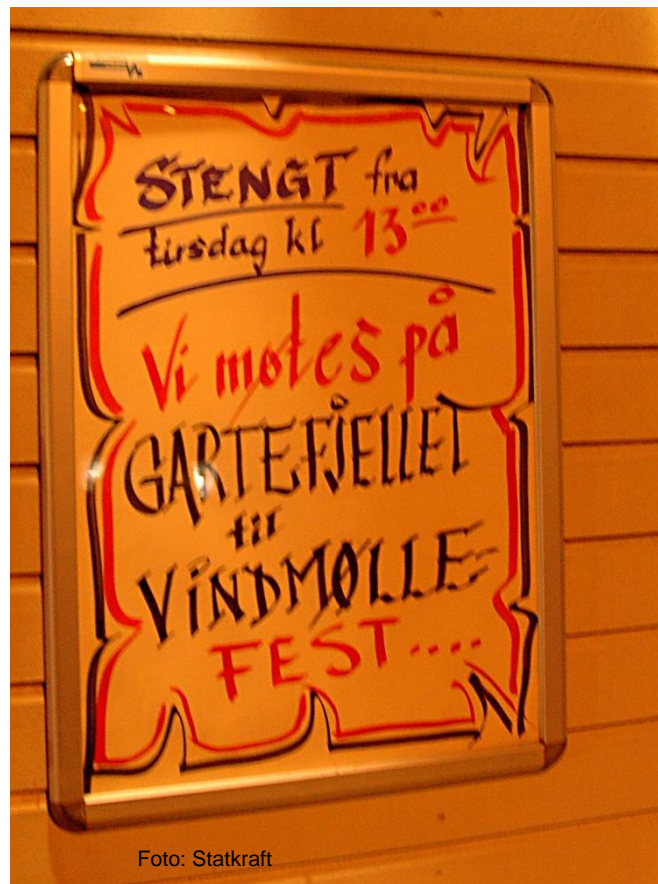 STENGT fra
tirsdag kl 13⁰⁰
Vi møtes på
GARTEFJELLET
til
VINDMØLLE-
FEST....
Foto: Statkraft